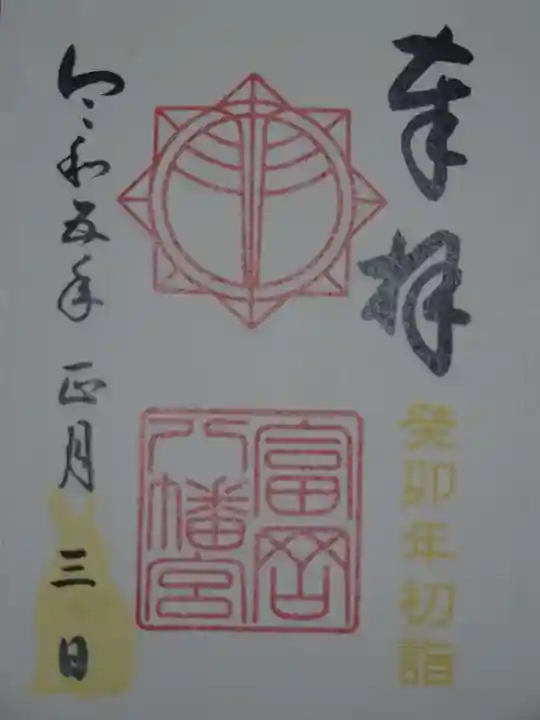 奉拝
癸卯年初詣
富岡
八幡宮
令和五年正月三日